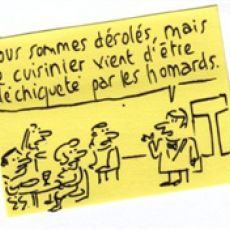 ous sommes désolés, mais
e cuisinier vient d'être
échiqueté par les homards.